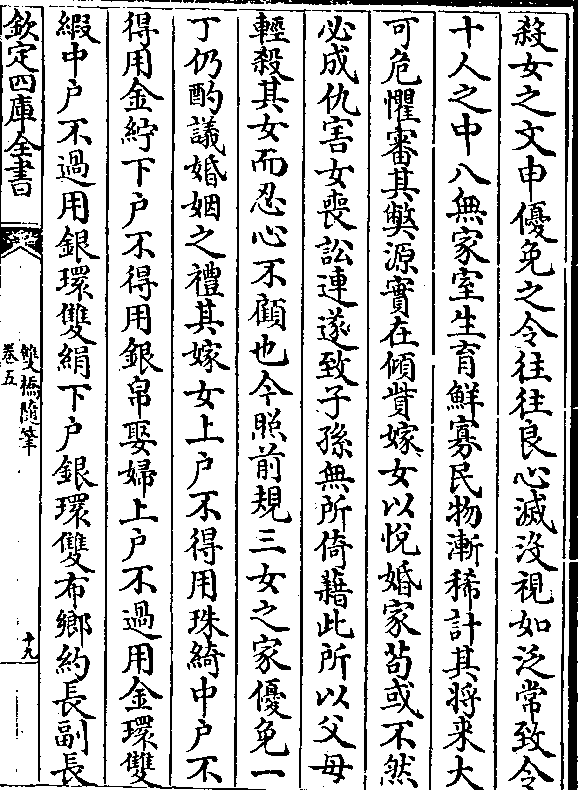 殺女之文申優免之令往往良心滅没視如泛常致令
十人之中八無家室生育鮮寡民物漸稀計其將來大
可危懼審其獘源實在傾貲嫁女以悦婚家苟或不然
必成仇害女喪訟連遂致子孫無所倚藉此所以父母
輕殺其女而忍心不顧也今照前規三女之家優免一
丁仍酌議婚姻之禮其嫁女上户不得用珠綺中户不
得用金紵下户不得用銀帛娶婦上户不過用金環雙
緞中户不過用銀環雙絹下户銀環雙布鄉約長副長
欽定四庫全書
雙橋隨筆
卷五
十九